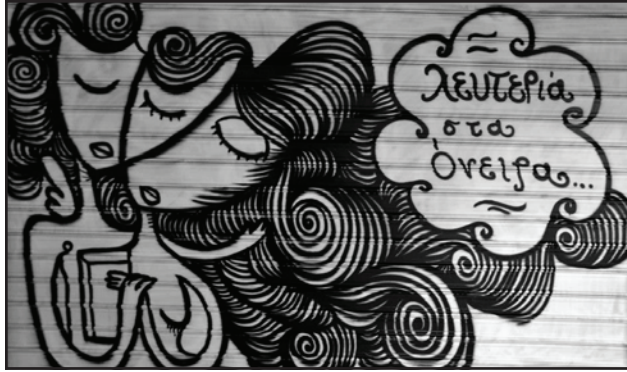 λευτεριά
στα
Όνειρα...